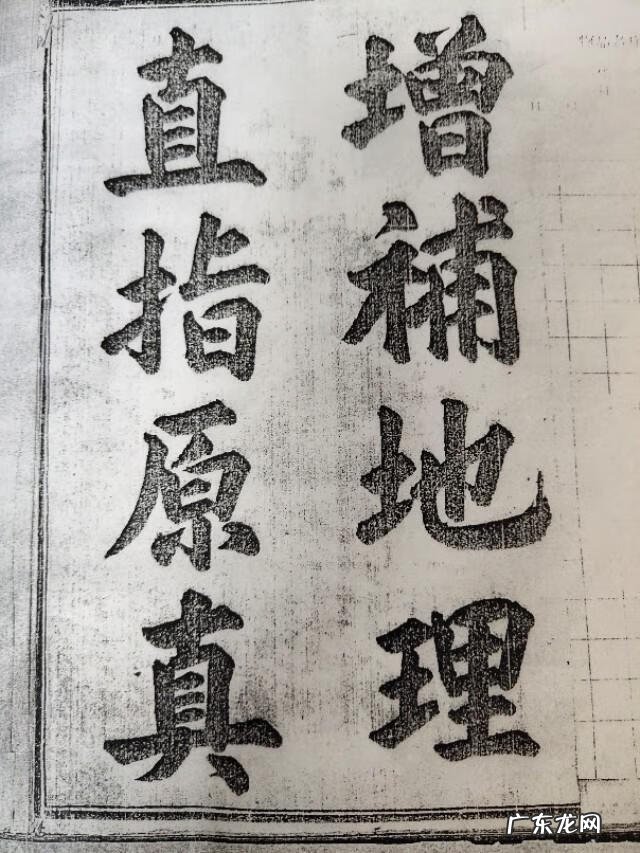 增補地理
直指原真
广东龙网